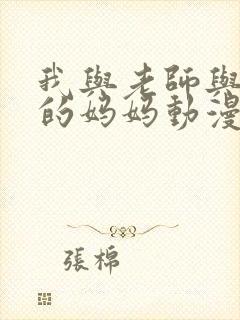 我與老師與
的妈妈動漫
張棉